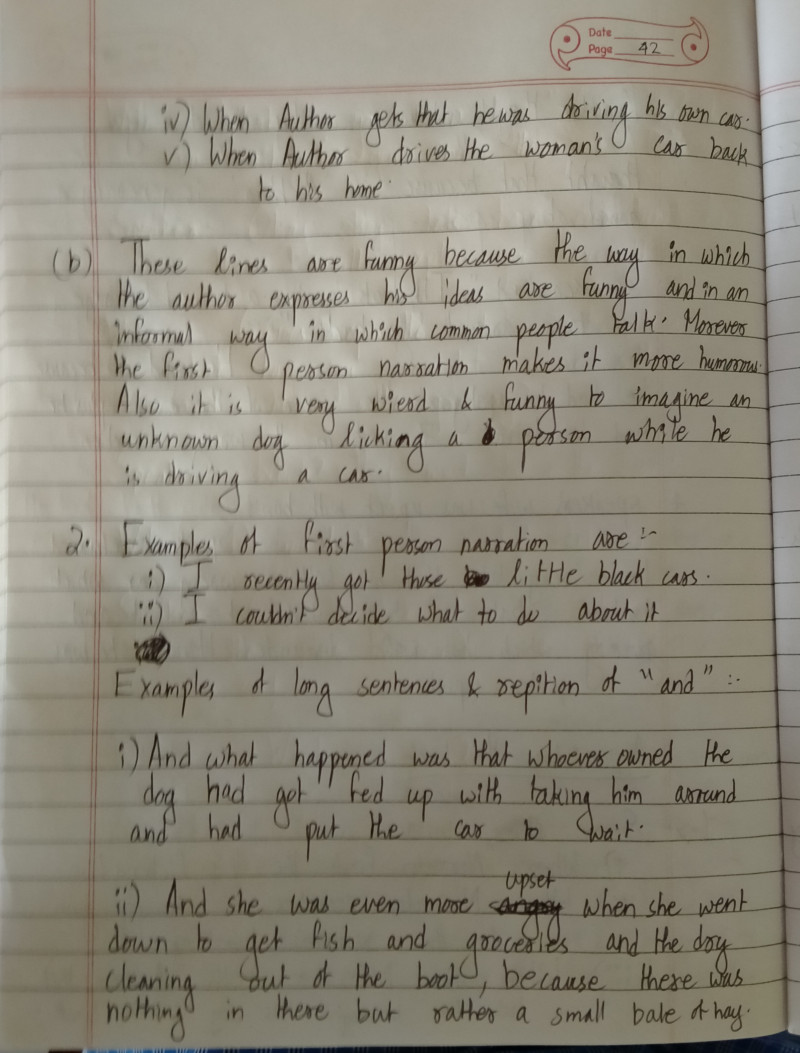 Date
Page 42
iv) When Author gets that he was driving his own car.
v) When Author drives the woman's car back
to his home.
(b) These lines are funny because the way in which
the author expresses his ideas are funny and in an
informal way in which common people talk. Morever
the first person narration makes it more humorous.
Also it is very wierd & funny to imagine an
unknown dog licking a person while he
is driving a car.
2. Examples of first person narration are :-
i) I recently got those little black cars.
ii) I couldn't decide what to do about it
Examples of long sentences & repition of "and" :-
i) And what happened was that whoever owned the
dog had got fed up with taking him around
and had put the car to wait.
ii) And she was even more upset when she went
down to get fish and groceries and the dog
cleaning out of the boot, because there was
nothing in there but rather a small bale of hay.